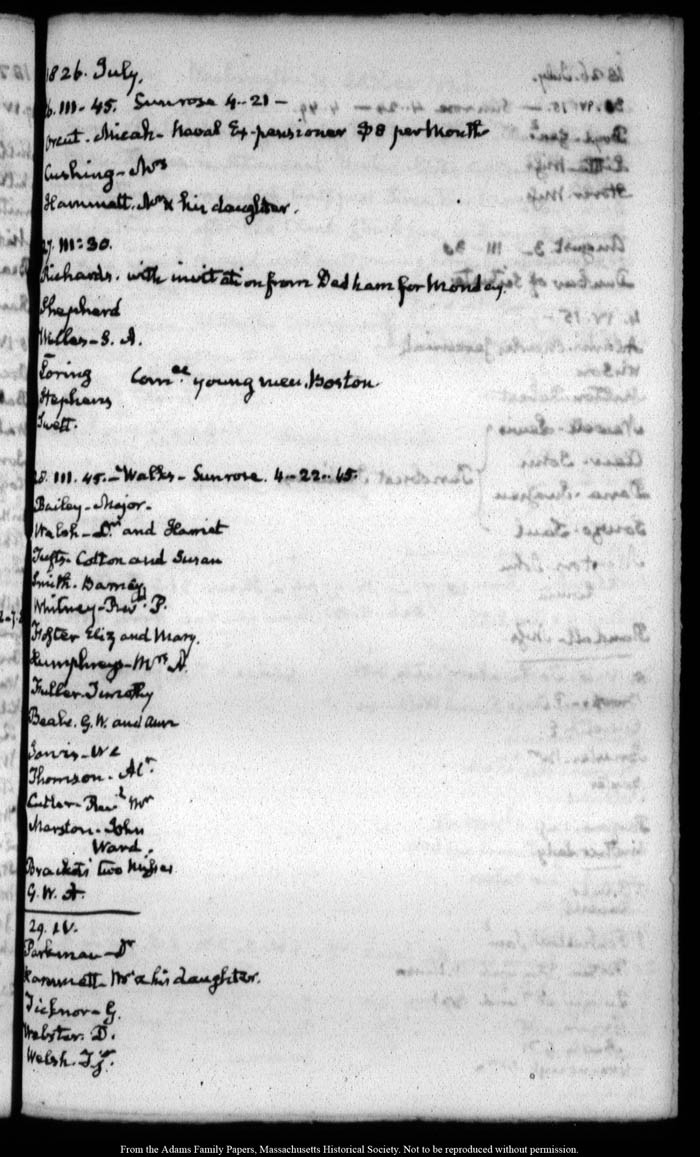 1826. July.
26. III-45. Sunrose 4-21-
Orcut. Micah- Naval Ex-pensioner $8 per Month
Cushing- Mrs
Hammatt. Mr & his daughter.
27. III:30.
Richards. with invitation from Dedham for Monday.
Shephard
Welles- S. A.
Loring Comee young men. Boston
Stephens
Swett.
28. III. 45.- Walks- Sunrose. 4-22-45.
Bailey- Major-
Walsh- and Harriet
Tufts- Cotton and Susan
Smith. Barney
Whitney- Revd. P.
Foster Eliz and Mary.
Humphreys- Mrs A.
Fuller. Timothy
Beale. G. W. and Ann
Thomson. Alr.
Cutler- Revd Mr
Marston- John
Ward.
Brackets two Misses
G. W. A.
29. IV.
Parkman- Dr
Hammatt- Mr & his daughter.
Ticknor- G.
Webster. D.
Welsh. T.
From the Adams Family Papers, Massachusetts Historical Society. Not to be reproduced without permission.